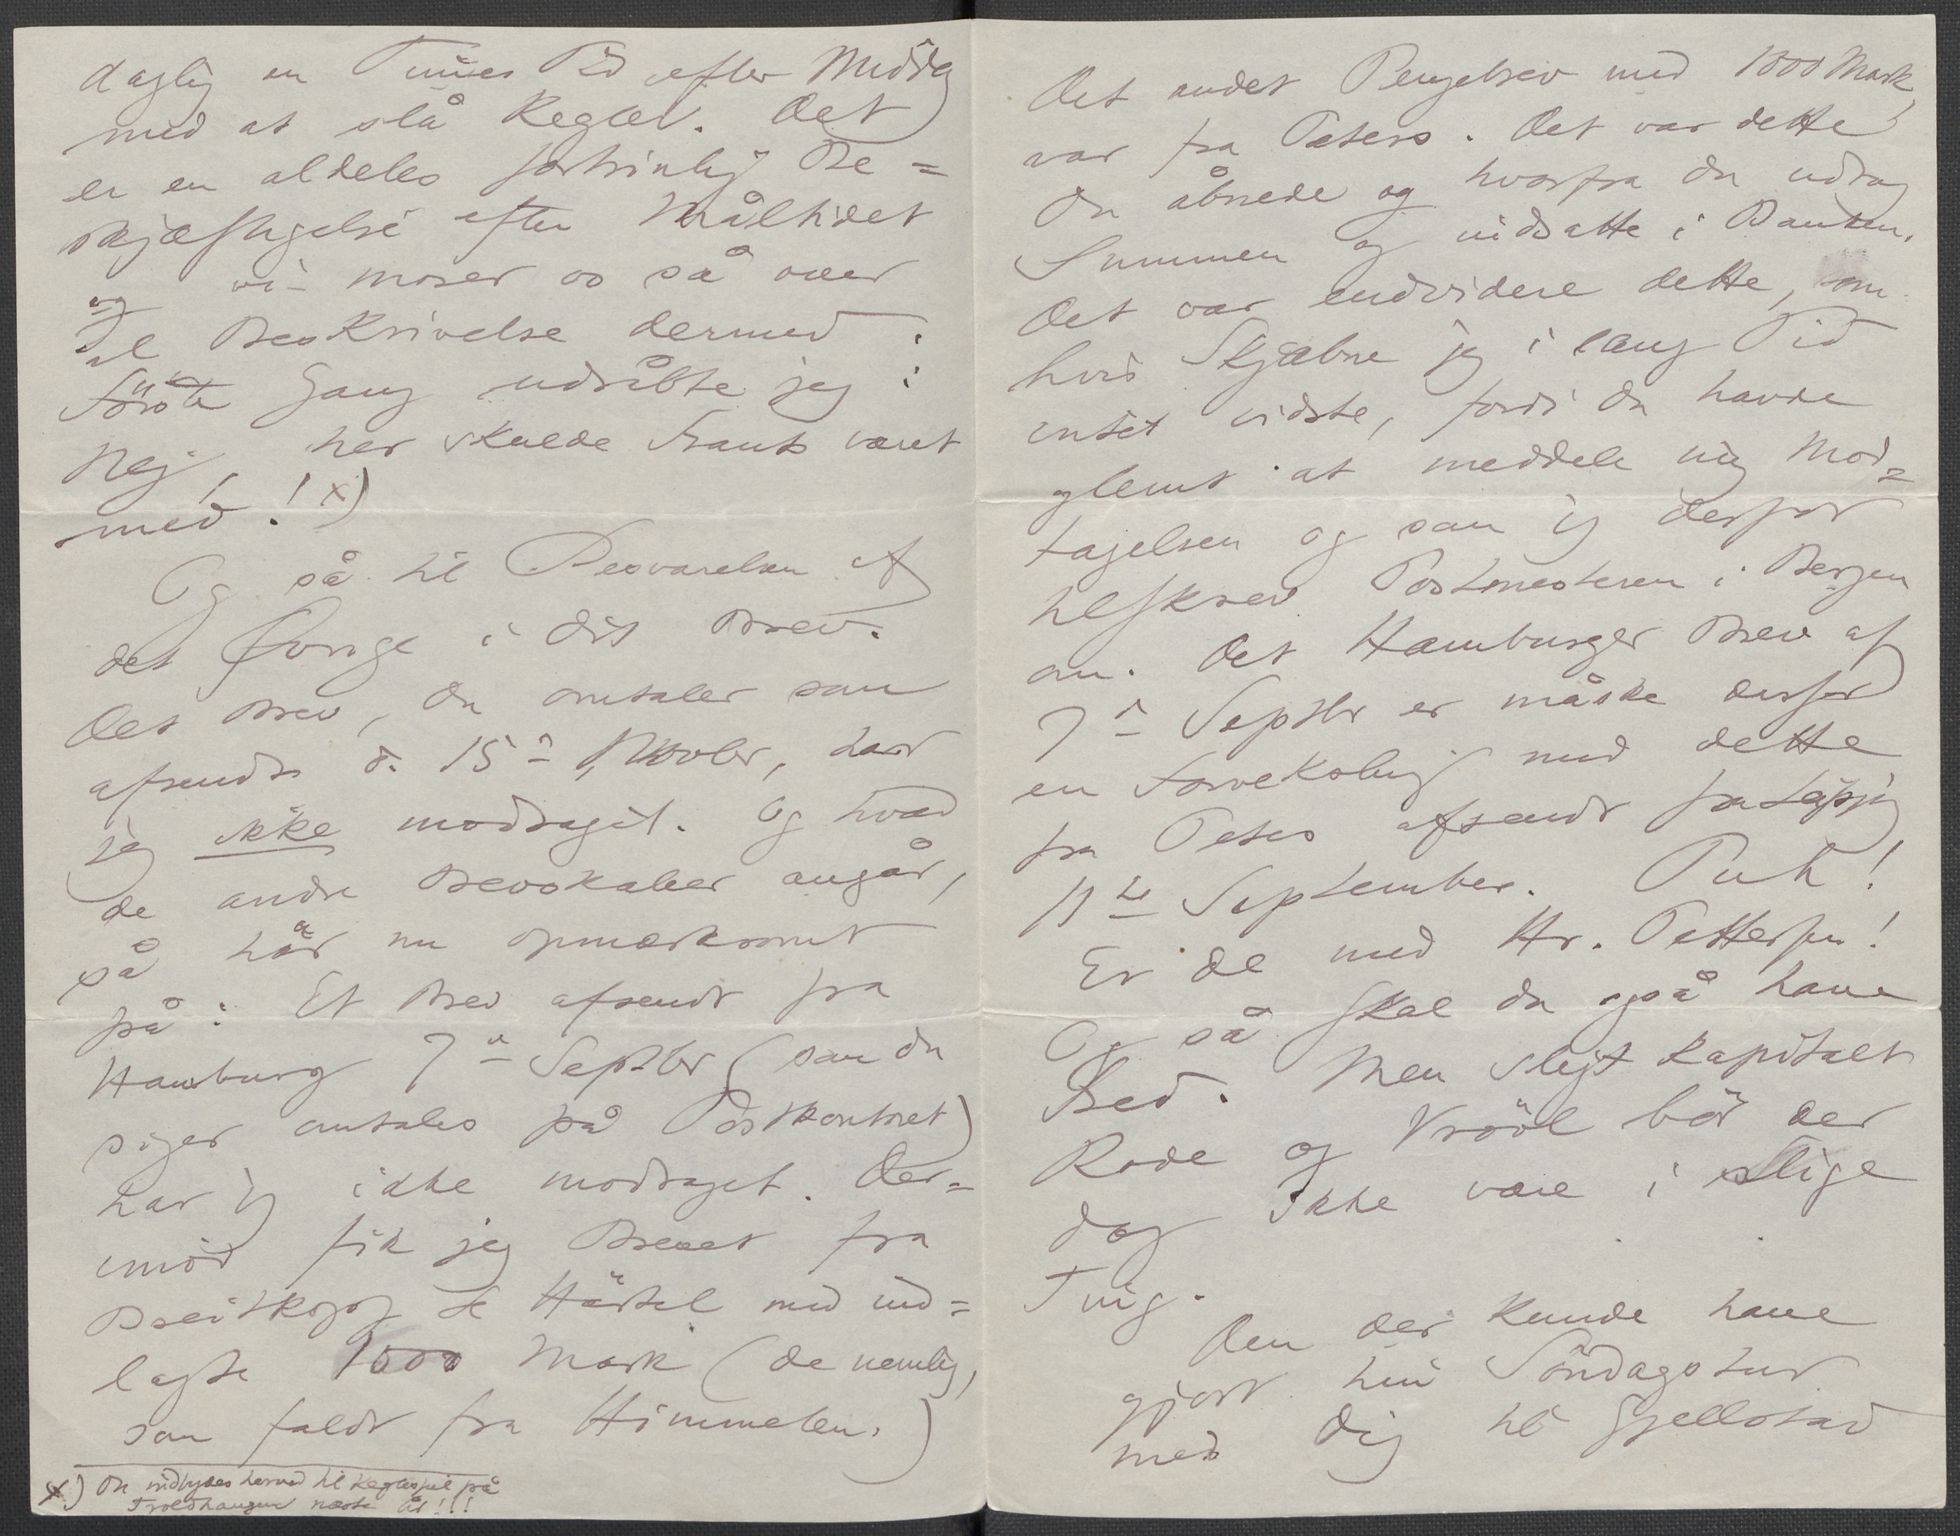 daglig en Times Tid efter Middag
med at slå Kegler. Det
er en aldeles fortrinlig Be=
skjæftigelse efter Måltidet
og vi morer os så over
al Beskrivelse dermed:
Første Gang udråbte jeg:
Nej, her skulde Frants været
med! x)
Og så til Besvarelsen af
det Øvrige i dit Brev.
Det Brev, du omtaler som
afsendt d. 15de Novbr, har
jeg ikke modtaget. Og hvad
de andre Brevskaber angår,
så hør nu opmærksomt
på: Et Brev afsendt fra
Hamburg 7de Septbr (som du
siger omtales på Postkontoret)
har jeg ikke modtaget. Der=
imod fik jeg Brevet fra
Breitkopf & Härtel med ind=
lagte 1000 Mark (de nemlig,
som faldt fra Himmelen.)
x) Du indbydes herved til Keglespil på
Troldhaugen næste År!!!
Det andet Pengebrev med 1000 Mark,
var fra Peters. Det var dette
du åbnede og hvorfra du udtog
Summen og indsatte i Banken.
Det var endvidere dette, om
hvis Skjæbne jeg i lang Tid
intet vidste, fordi du havde
glemt at meddele mig Mod=
tagelsen og som jeg derfor
tilskrev Postmesteren i Bergen
om. Det Hamburger Brev af
7de Septbr er måske derfor
en Forveksling med dette
fra Peters afsendt fra Leipzig
11te September. Puh!
Er De med Hr. Pettersen!
Og så skal du også have
Fred. Men sligt kapitalt
Rode og Vrøvl bør der
dog ikke være i slige
Ting.
Den der kunde have
gjort hin Søndagstur
med dig til Gjellstad